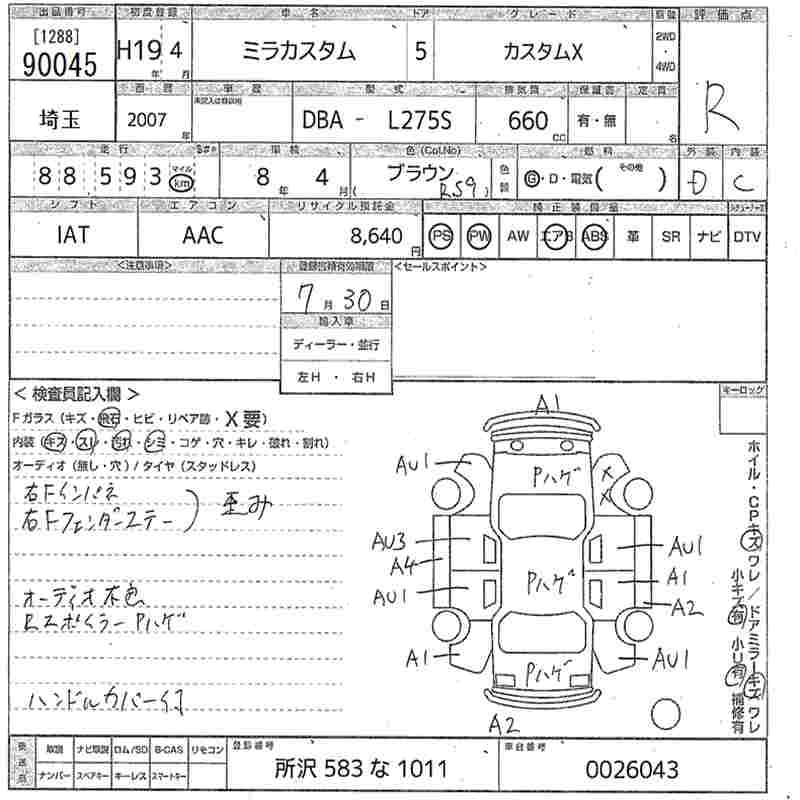 出品番号 初度登録 車名 ドア グレード 駆動 評価点
[1288]
90045 H19年 4月 ミラカスタム 5 カスタムX 2WD・4WD R
埼玉 車歴 型式 排気量 保証書 定員
2007年 未記入は自家用 DBA - L275S 660cc 有・無 名
走行 車検 色(Col.No) 燃料 外装 内装
88593 マイル km 8年 4月 ブラウン (RS9) 色替 G・D・電気( その他 ) D C
シフト エアコン リサイクル預託金 純正装備品
IAT AAC 8,640円 PS PW AW エアB ABS 革 SR ナビ DTV
<注意事項> 登録書類有効期限 <セールスポイント>
7月30日
輸入車
ディーラー・並行
左H ・ 右H
<検査員記入欄> キーロック
Fガラス(キズ・飛石・ヒビ・リペア跡・X要)
内装(キズ・スレ・汚れ・シミ・コゲ・穴・キレ・破れ・割れ)
オーディオ(無し・穴)/タイヤ(スタッドレス)
右Fインパネ
右Fフェンダーステー ) 歪み
オーディオ不色
Rスポイラー Pハゲ
ハンドルカバー付
A1
Pハゲ
AU1 X X
AU3 AU1
A4 A1
Pハゲ
AU1 A2
A1 AU1
Pハゲ
A2
ホイル・CPキズワレ/ドアミラーキズワレ
小キズ有 小U有 補修有
発送品 取説 ナビ取説 ロム/SD B-CAS リモコン 登録番号 車台番号
ナンバー スペアキー キーレス スマートキー 所沢 583 な 1011 0026043